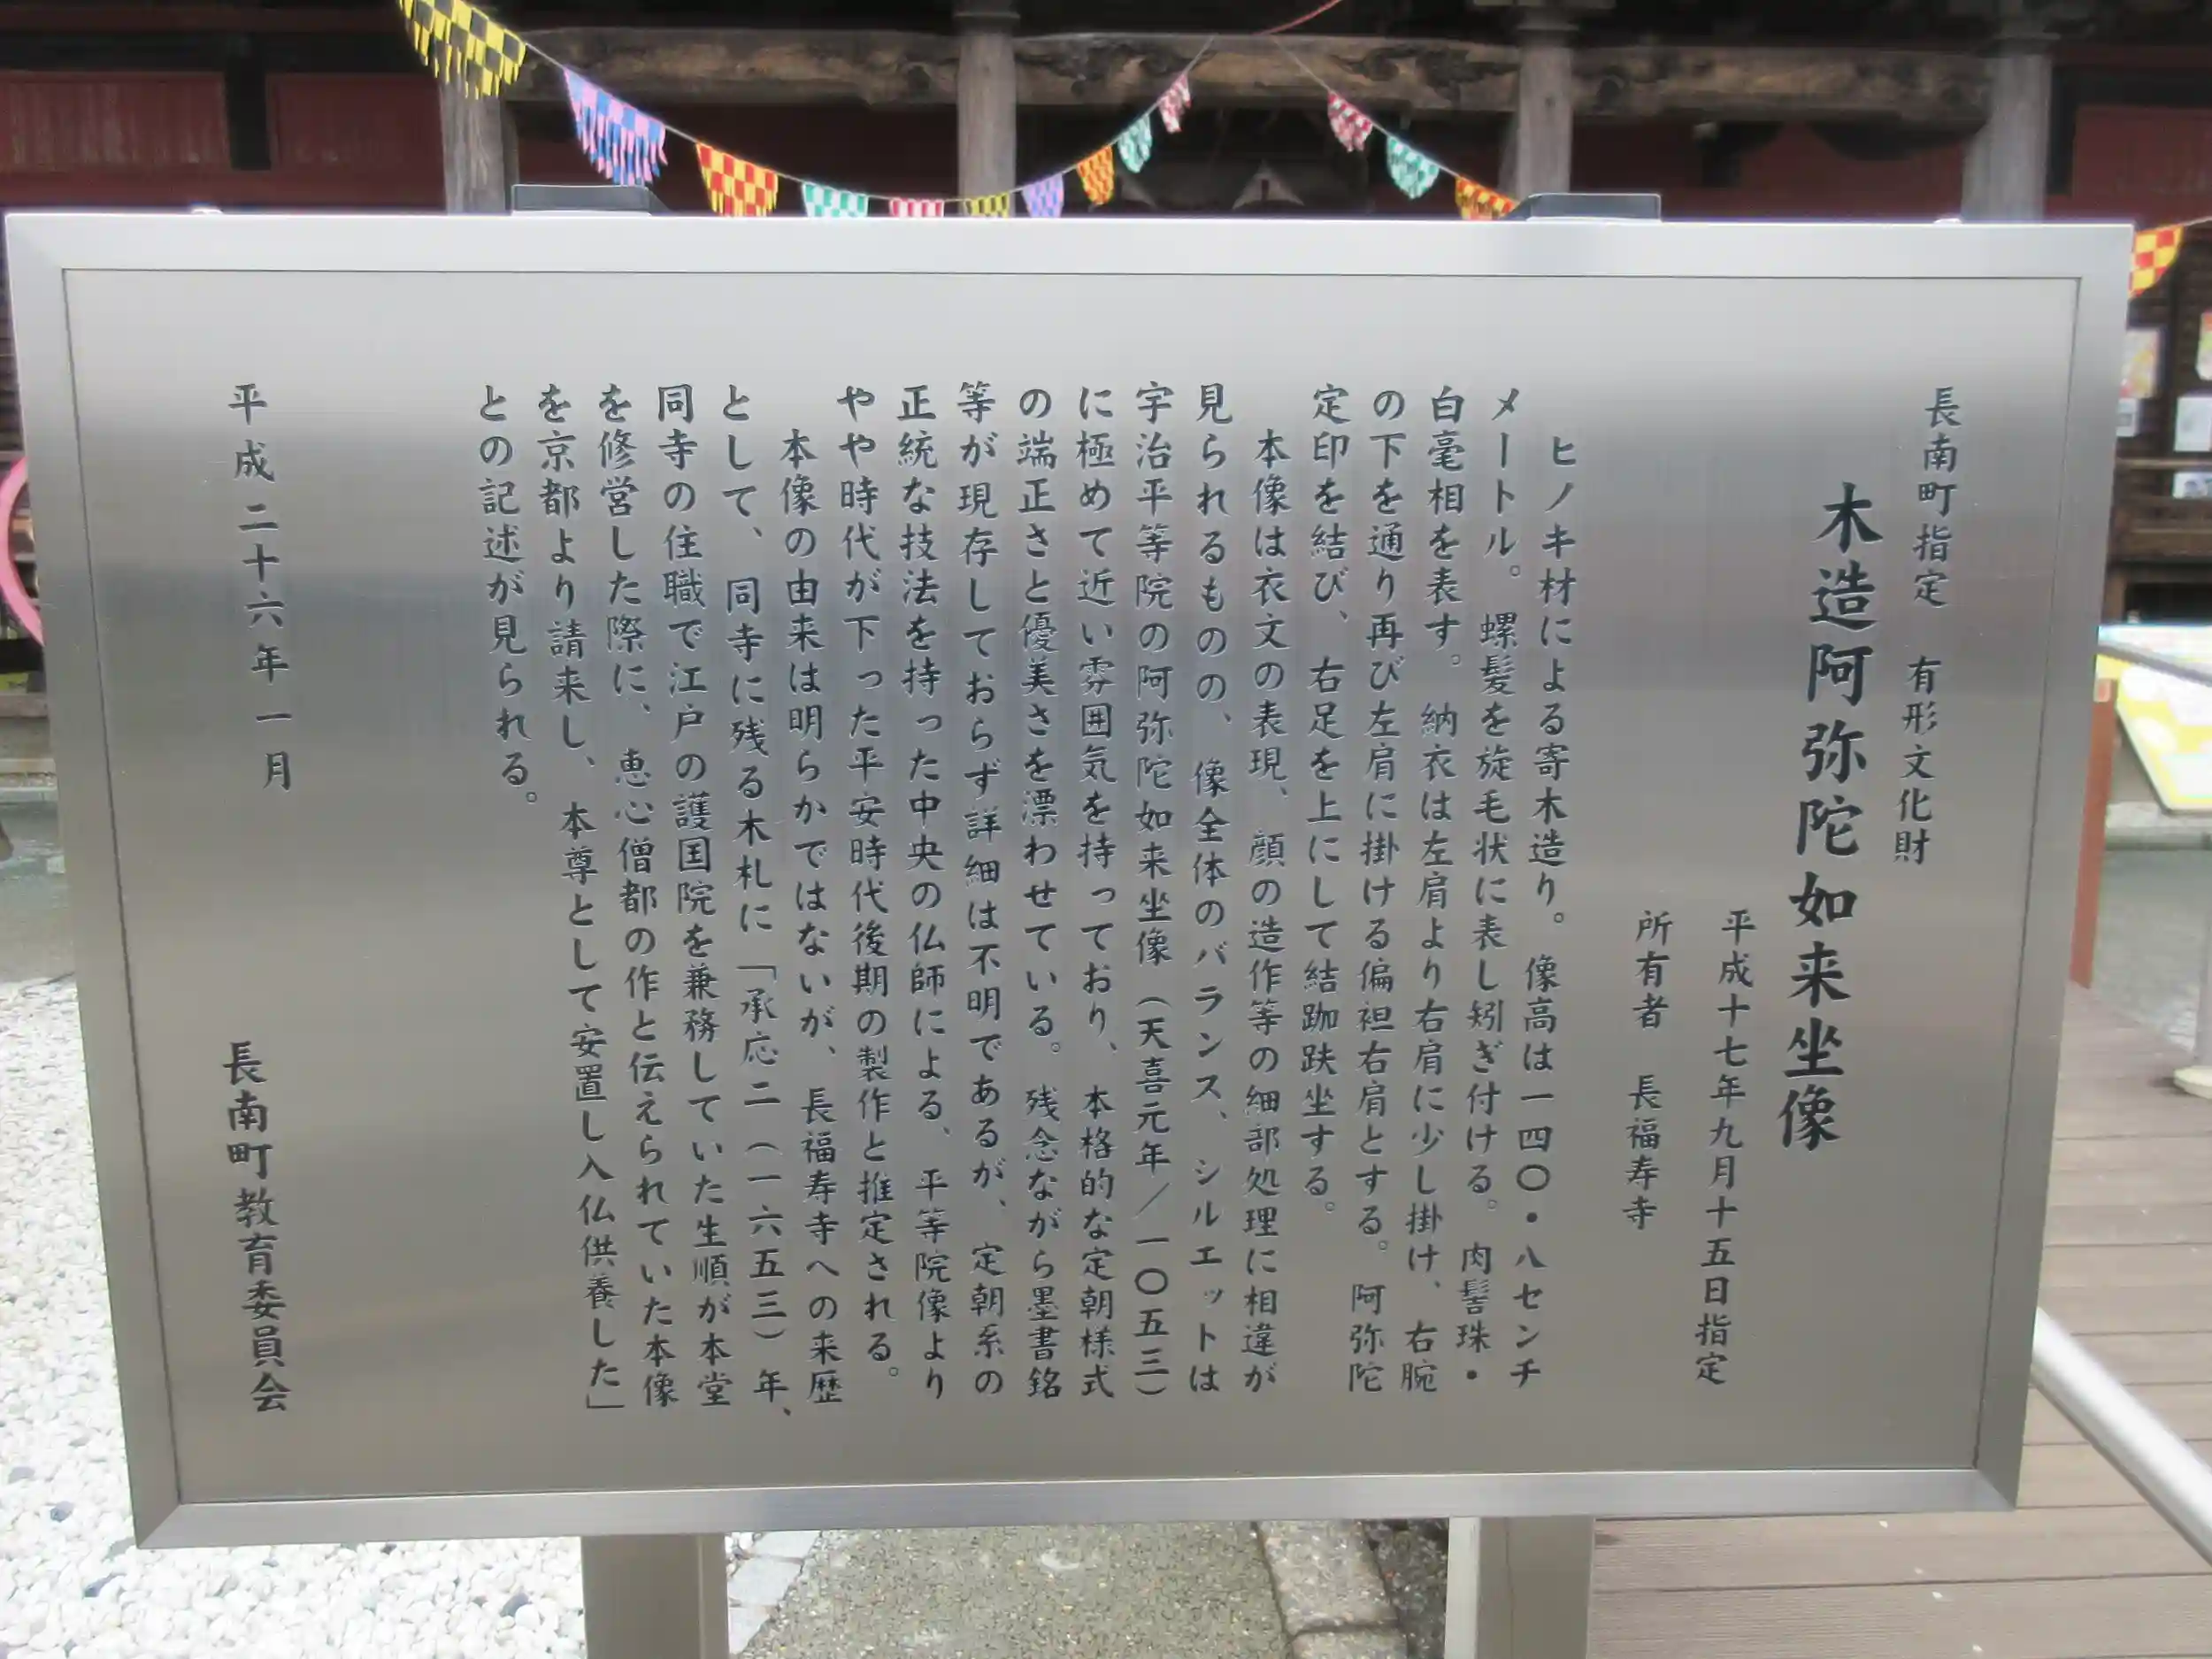 長南町指定 有形文化財
木造阿弥陀如来坐像
平成十七年九月十五日指定
所有者 長福寿寺
ヒノキ材による寄木造り。像高は一四〇・八センチ
メートル。螺髪を旋毛状に表し矧ぎ付ける。肉髻珠・
白毫相を表す。納衣は左肩より右肩に少し掛け、右腕
の下を通り再び左肩に掛ける偏袒右肩とする。阿弥陀
定印を結び、右足を上にして結跏趺坐する。
本像は衣文の表現、顔の造作等の細部処理に相違が
見られるものの、像全体のバランス、シルエットは
宇治平等院の阿弥陀如来坐像（天喜元年／一〇五三）
に極めて近い雰囲気を持っており、本格的な定朝様式
の端正さと優美さを漂わせている。残念ながら墨書銘
等が現存しておらず詳細は不明であるが、定朝系の
正統な技法を持った中央の仏師による、平等院像より
やや時代が下った平安時代後期の製作と推定される。
本像の由来は明らかではないが、長福寿寺への来歴
として、同寺に残る木札に「承応二（一六五三）年、
同寺の住職で江戸の護国院を兼務していた生順が本堂
を修営した際に、恵心僧都の作と伝えられていた本像
を京都より請来し、本尊として安置し入仏供養した」
との記述が見られる。
平成二十六年一月
長南町教育委員会